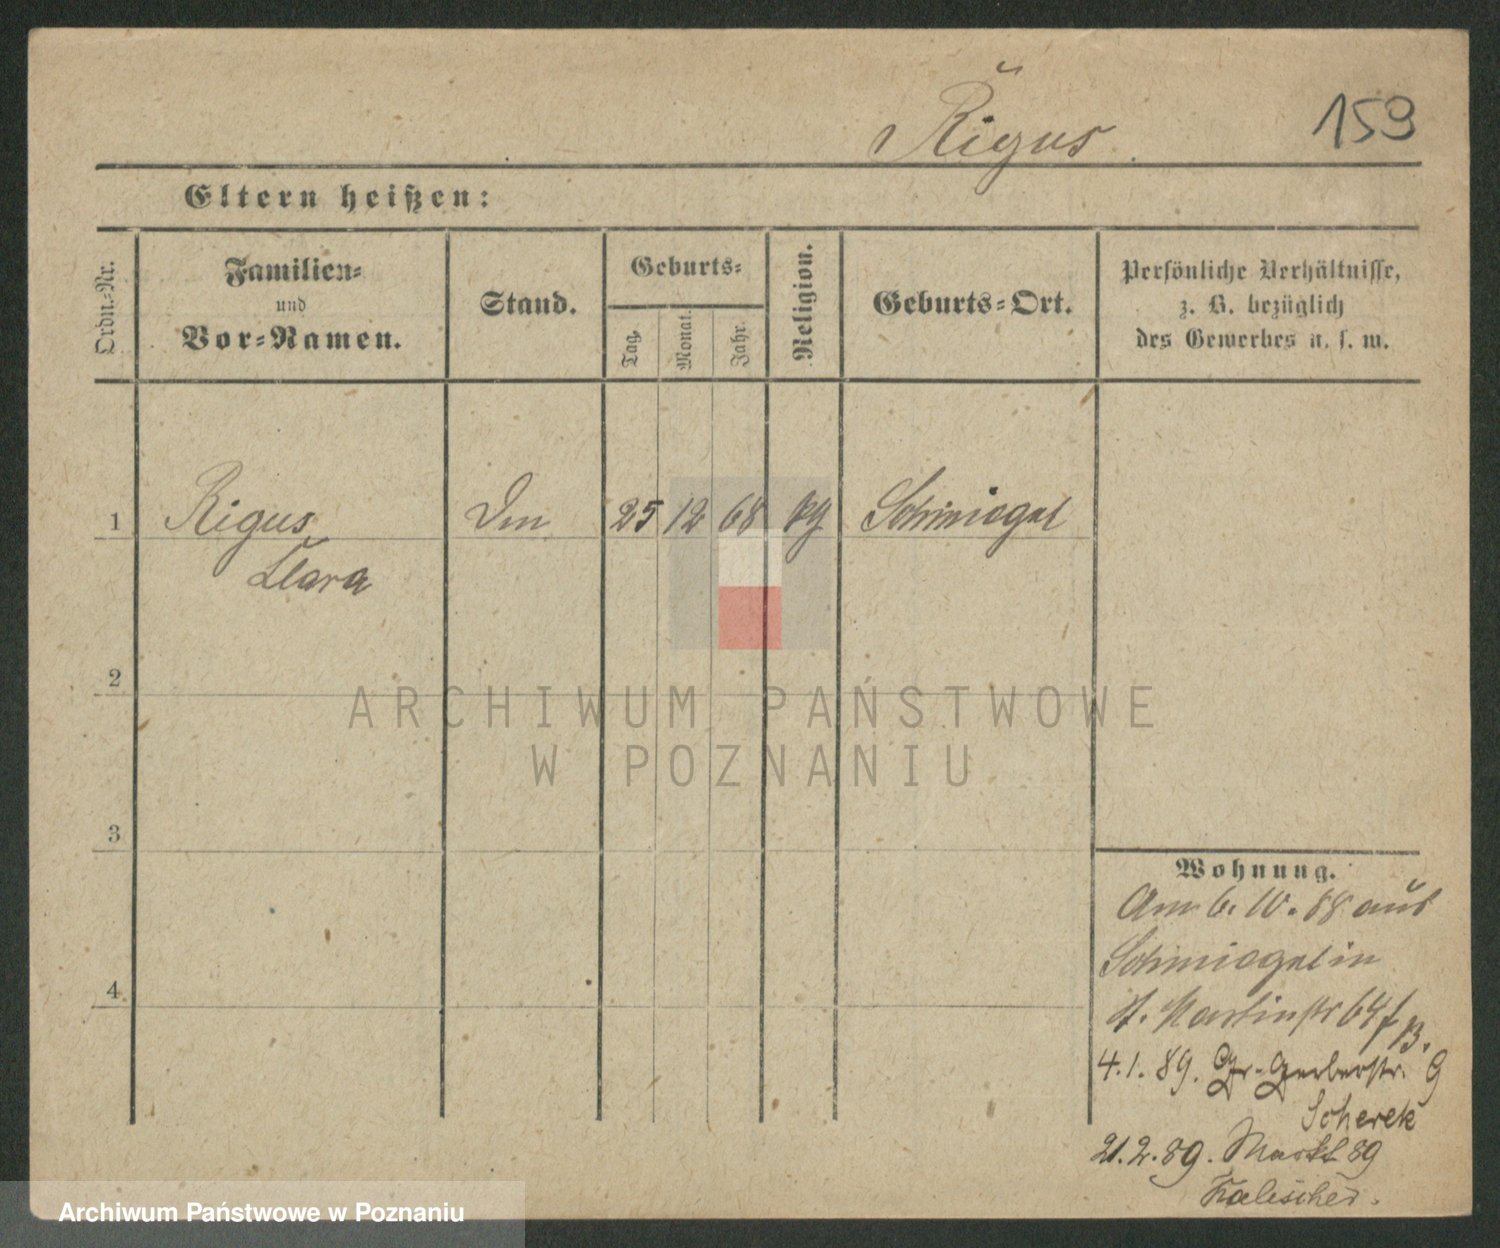 Rigus
159
Eltern heißen:
Ordn.-Nr.
Familien-
und
Vor-Namen.
Stand.
Geburts-
Tag.
Monat.
Jahr.
Religion.
Geburts-Ort.
Persönliche Verhältnisse,
z. B. bezüglich
des Gewerbes u. s. w.
1 Rigus 25 12 68 Schmiegel
Clara
2
3
4
Wohnung.
Am 6. 10. 88 aus
Schmiegel in
St. Martinstr 64
4.1.89. Gr. Gerberstr. 9
Scherek
21.2.89. Markt 89
Kalischer.
ARCHIWUM PAŃSTWOWE
W POZNANIU
Archiwum Państwowe w Poznaniu